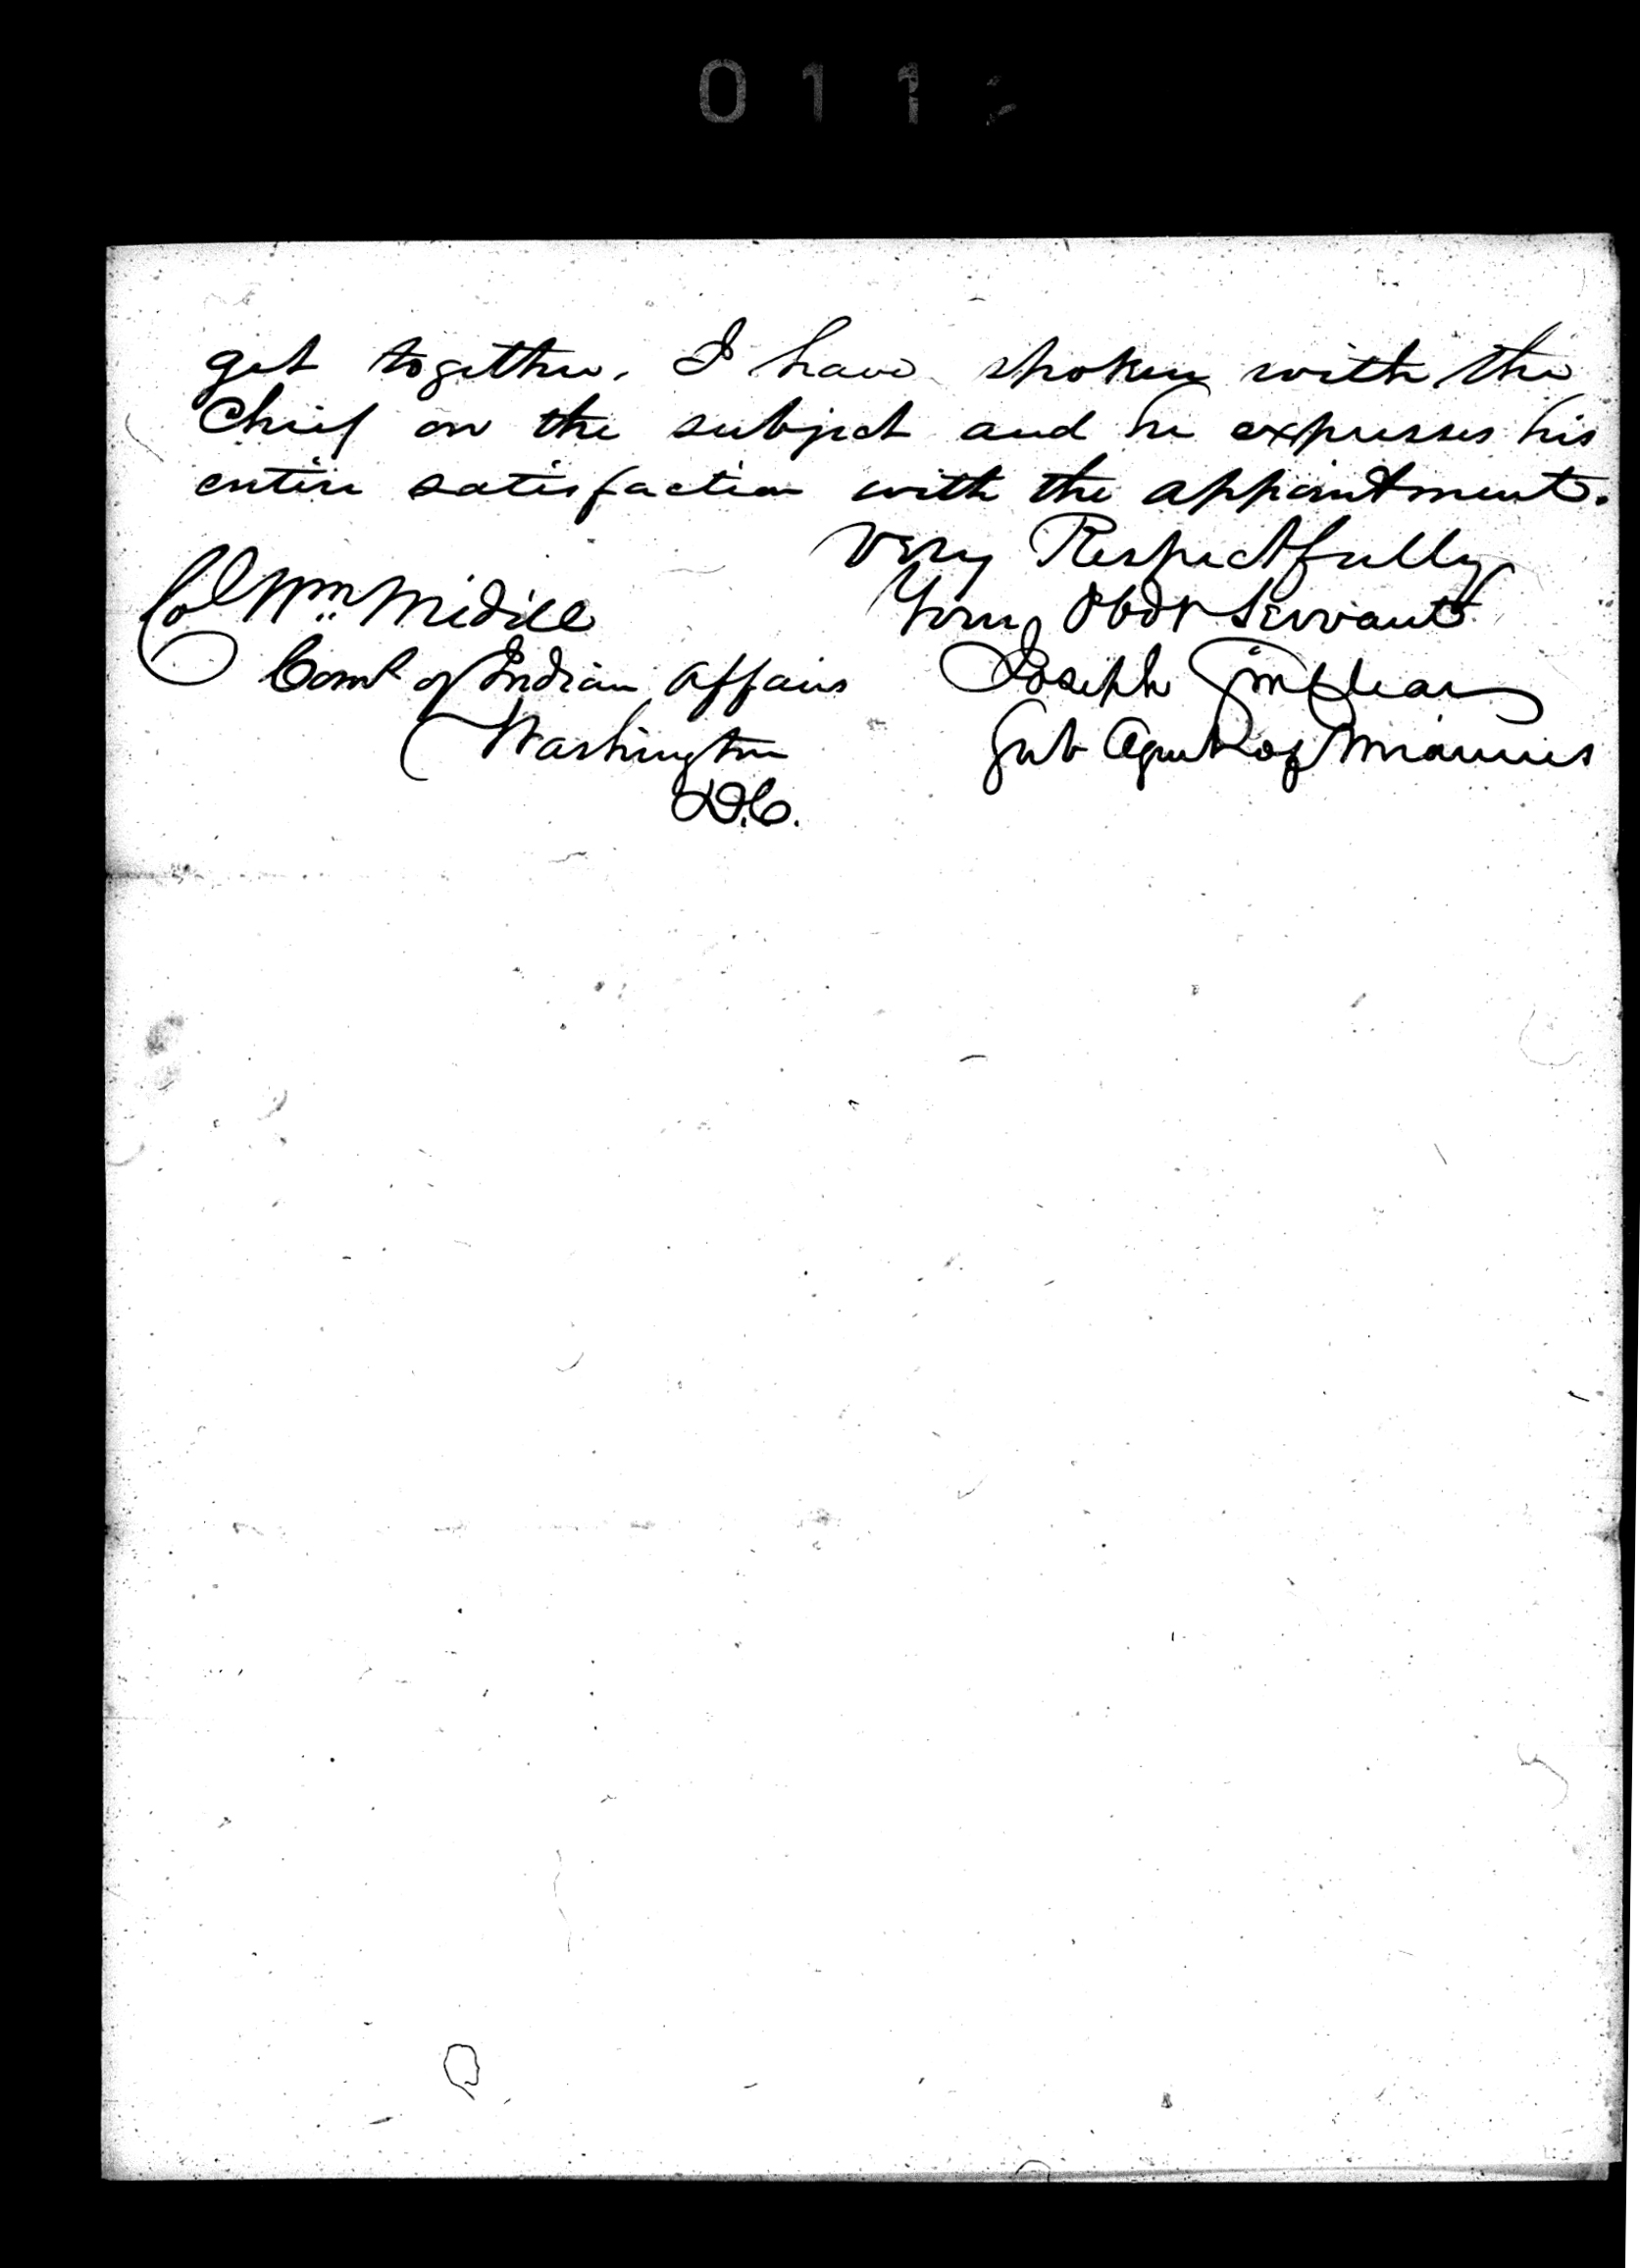 011
get together. I have spoken with the
Chief on the subject and he expresses his
entire satisfaction with the appointment.
Very Respectfully
Col Wm Medill Your Obdt Servant
Comr of Indian Affairs Joseph Sinclear
Washington Sub Agent of Miamies
D.C.